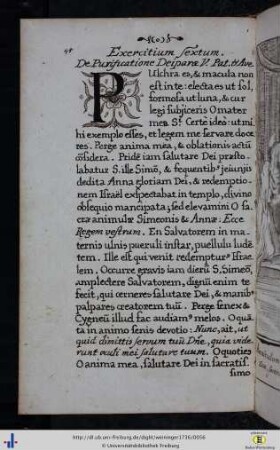 Exercitium sextum.
De Purificatione Deiparæ V. Pat. & Ave
PUlchra es, & macula non
est in te: electa es ut sol,
formosa ut luna, & cur
legi subjiceris O mater
mea Ss? Certe ideò: ut mi
hi exemplo esses, et legem me servare doce
res. Perge anima mea, & oblationis actū
cōsidera. Pridē iam salutare Dei præsto
labatur S. ille Sinio, & frequentibꝰ jejunijs
dedita Anna gloriam Dei, & redemptio-
nem Israël exspectabat in templo, divino
obsequio mancipata; sed elevamini O sa
cræ animulæ Simeonis & Annæ: Ecce
Regem vestrum. En Salvatorem in ma-
ternis ulnis pueruli instar, puellulu ludē
tem. Ille est qui venit redempturꝰ Isra
elem. Occurre gravis iam dierū S. Simeō,
amplectere Salvatorem, dignū enim te
fecit, qui cerneres salutare Dei, & manibꝰ
palpares creatorem tuū. Perge senex &
Cygneū illud fac audiamꝰ melos. O quā
ta in animo senis devotio: Nunc, ait, ut
quid dimittis servum tuū Dñe, quia vide
runt oculi mei salutare tuum. O quoties
O anima mea, salutare Dei in sacratis-
simo
http://dl.ub.uni-freiburg.de/diglit/weininger1736/0056
Universitätsbibliothek Freiburg